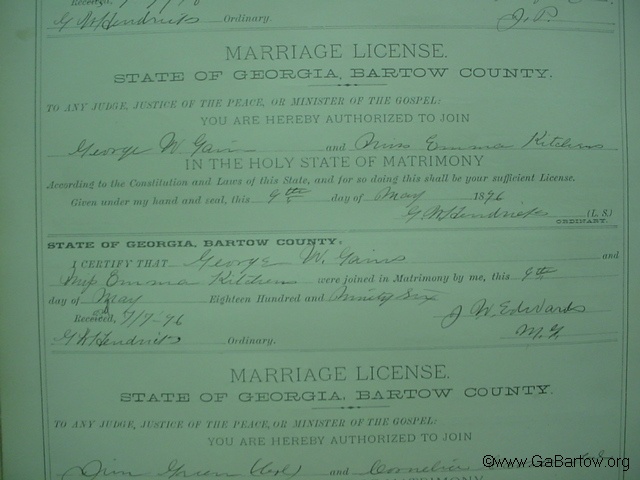 G W Hendricks Ordinary. J. P.
MARRIAGE LICENSE.
STATE OF GEORGIA, BARTOW COUNTY.
TO ANY JUDGE, JUSTICE OF THE PEACE, OR MINISTER OF THE GOSPEL:
YOU ARE HEREBY AUTHORIZED TO JOIN
George W Gains and Miss Emma Kitchens
IN THE HOLY STATE OF MATRIMONY
According to the Constitution and Laws of this State, and for so doing this shall be your sufficient License.
Given under my hand and seal, this 9th day of May 1896
G W Hendricks (L. S.)
ORDINARY.
STATE OF GEORGIA, BARTOW COUNTY.
I CERTIFY THAT George W. Gains and
Miss Emma Kitchens were joined in Matrimony by me, this 9th
day of May Eighteen Hundred and Ninety Six
J W. Edwards
G W Hendricks Ordinary. M. G.
MARRIAGE LICENSE.
STATE OF GEORGIA, BARTOW COUNTY.
TO ANY JUDGE, JUSTICE OF THE PEACE, OR MINISTER OF THE GOSPEL:
YOU ARE HEREBY AUTHORIZED TO JOIN
Green and
©www.GaBartow.org